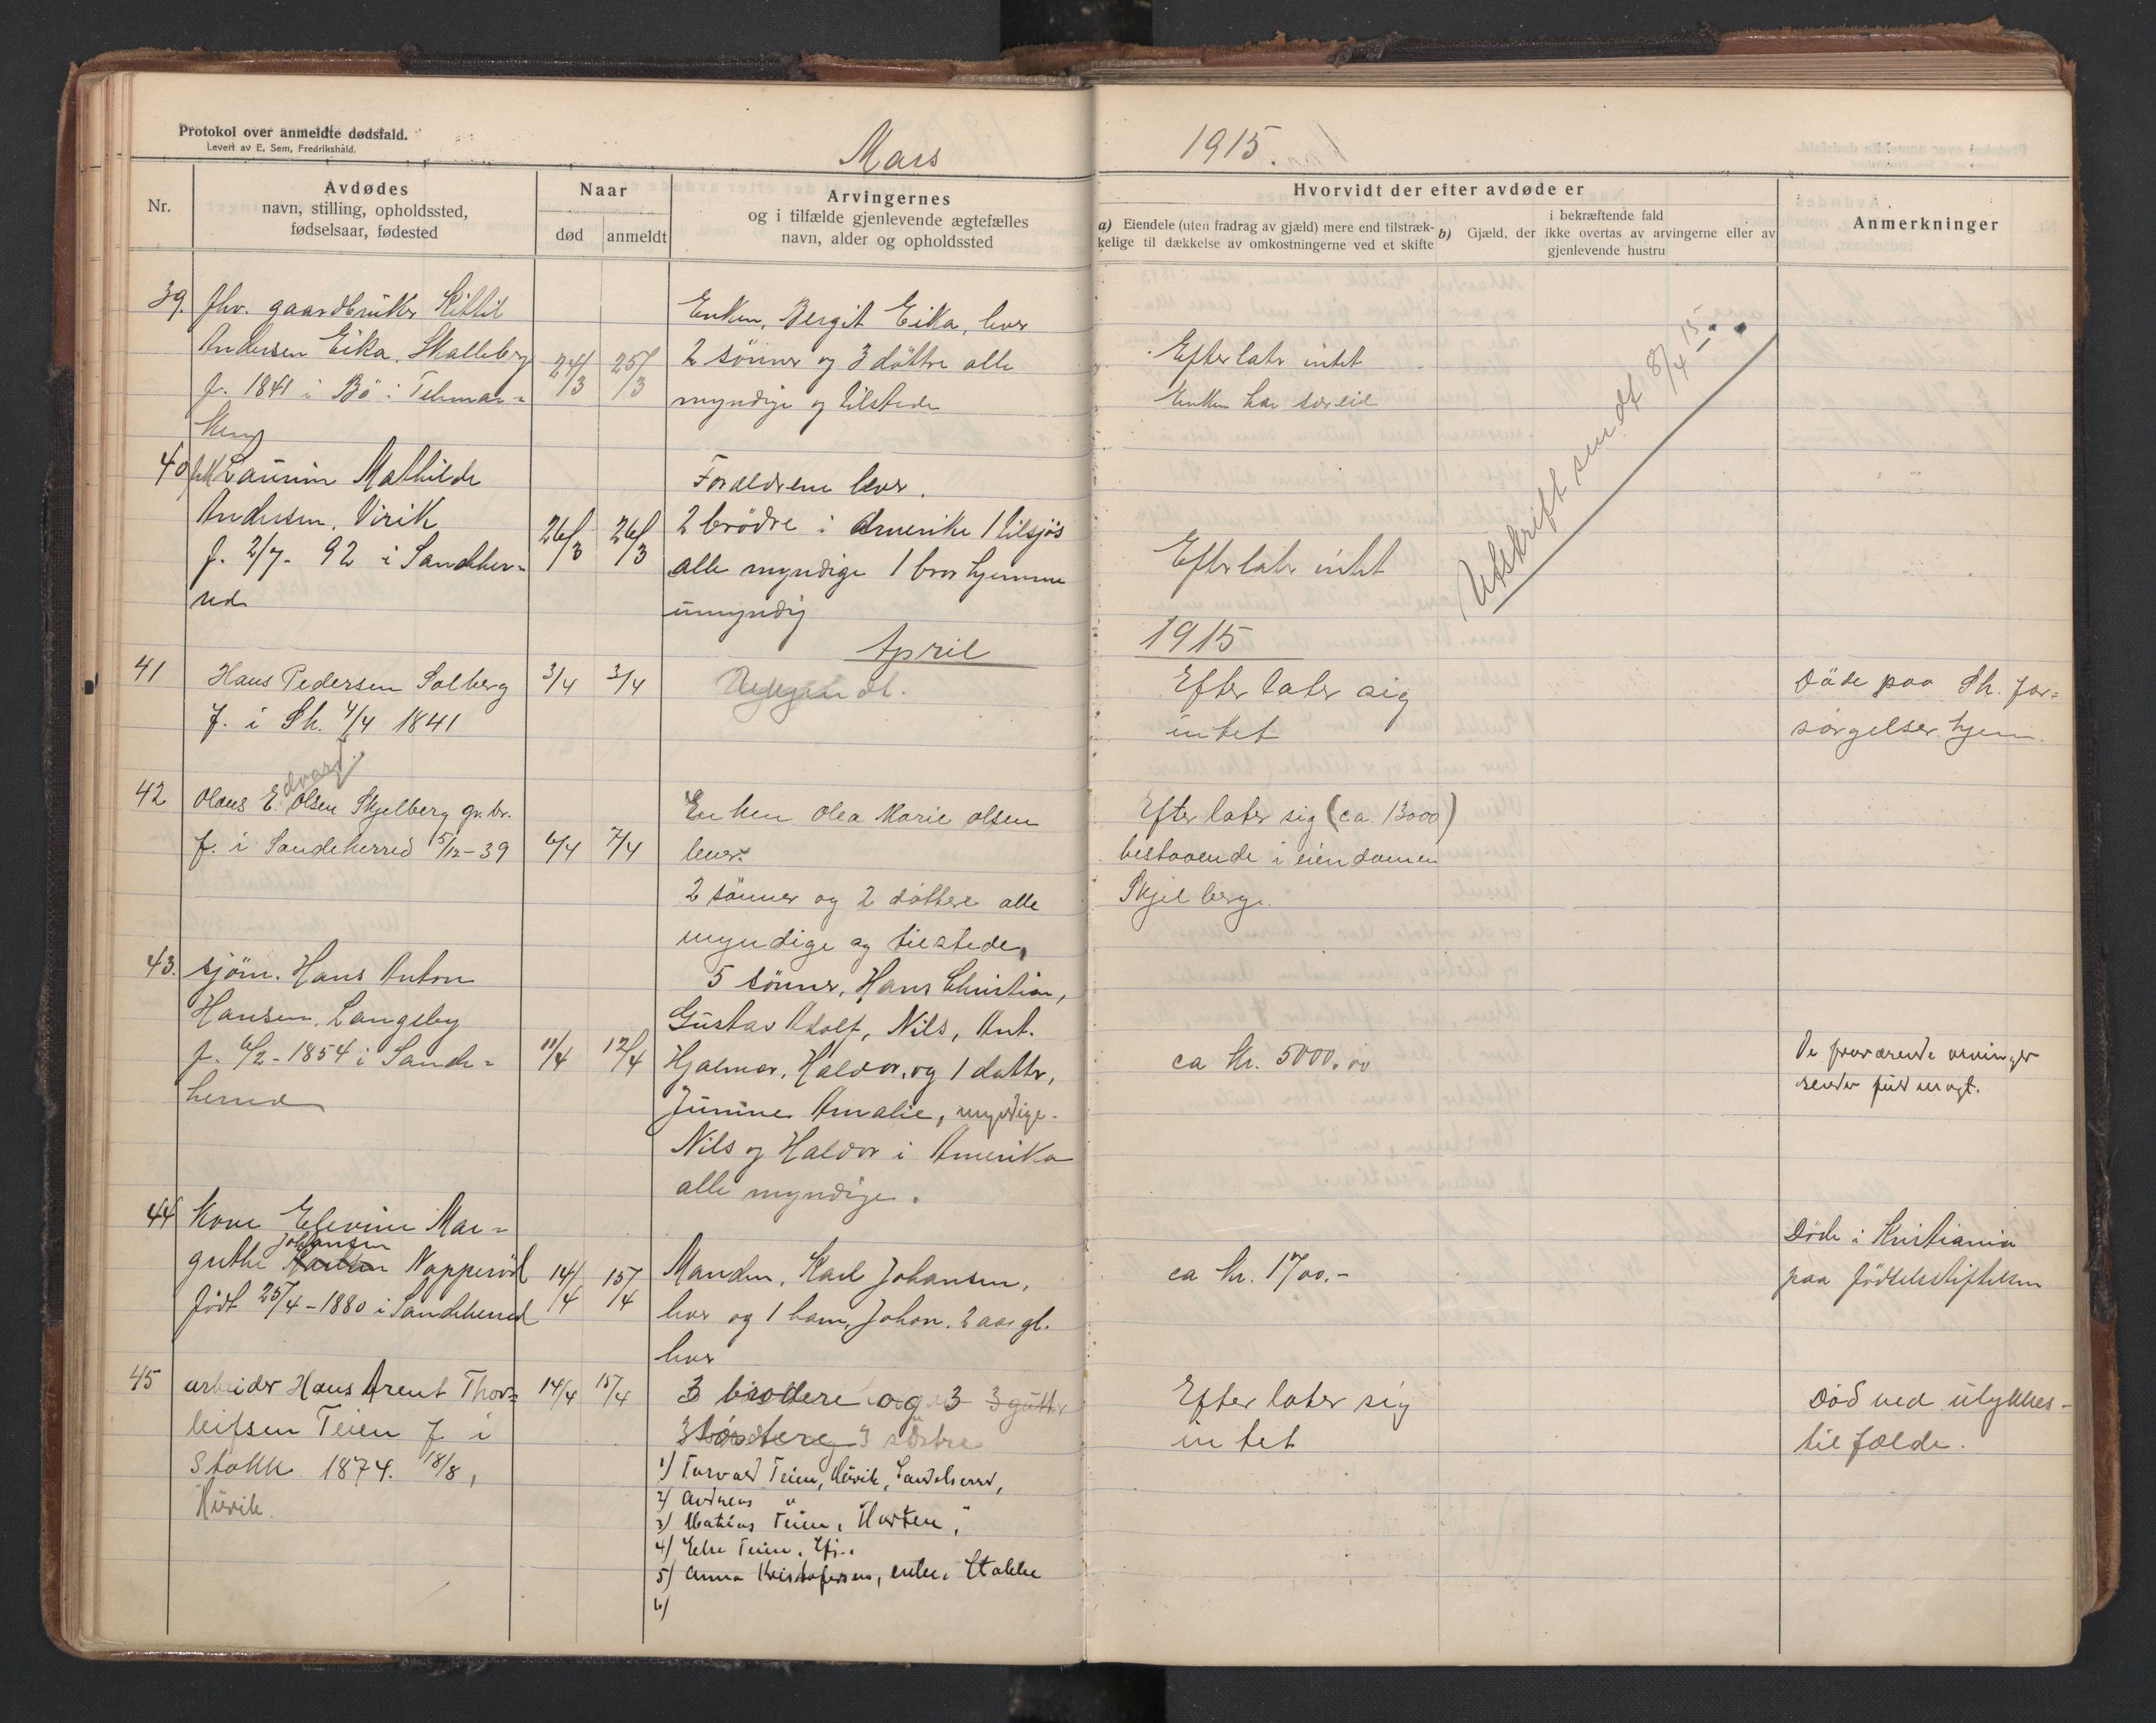 Protokol over anmeldte dødsfald.
Levert av E. Sem, Fredrikshald.
Mars 1915.
Nr.
Avdødes
navn, stilling, opholdssted,
fødselsaar, fødested
Naar
død
anmeldt
Arvingernes
og i tilfælde gjenlevende ægtefælles
navn, alder og opholdssted
Hvorvidt der efter avdøde er
a) Eiendele (uten fradrag av gjæld) mere end tilstræk-
kelige til dækkelse av omkostningerne ved et skifte
b) Gjæld, der
i bekræftende fald
ikke overtas av arvingerne eller av
gjenlevende hustru
Anmerkninger
39. fhv. gaardbruker Kittil
Andersen Eika, Skalleberg
f. 1841 i Bö i Telemar=
ken
24/3
25/3
Enken, Bergit Eika, lever
2 sönner og 3 döttre alle
myndige og tilstede
Efterlater intet
Enken har særeie
Utskrift sendt 8/4 15
40 Laurine Mathilde
Andersen, Virik
f. 2/7- 92 i Sandeher=
red
26/3
26/3
Forældrene lever.
2 brödre i Amerika 1 tilsjös
alle myndige 1 bror hjemme
umyndig
Efterlater intet
April
1915
41
Hans Pedersen Solberg
f. i Sh. 4/4 1841
3/4
3/4
Efterlater sig
intet
Döde paa Sh. for=
sørgelses hjem.
42
Olaus Edvard Olsen Skjelberg gr. br.
f. i Sandeherred 15/12-39
6/4
7/4
Enken Olea Marie Olsen
lever.
2 sönner og 2 döttere alle
myndige og tilstede.
Efterlater sig (ca. 13000)
bestaaende i eiendomen
Skjelberg.
43. sjöm. Hans Anton
Hansen, Langeby
f. 6/2-1854 i Sande=
herred
11/4
12/4
5 sönner, Hans Christian,
Gustav Adolf, Nils, Ant.
Hjalmar, Haldor, og 1 datter,
Junine Amalie, myndige.
Nils og Haldor i Amerika
alle myndige.
ca kr. 5000.00
De fraværende arvinger
sender fuldmagt.
44 Kone Elevine Mar=
grethe Hansen Johansen Napperöd
födt 25/4-1880 i Sandeherred
14/4
15/4
Manden, Karl Johansen,
lever og 1 barn, Johan. 2 aar gl.
lever
ca kr. 1700.-
Döde i Kristiania
paa födselsstiftelsen
45
arbeider Hans Arent Thor=
leifsen Teien f i
Stokke 1874. 18/8,
Huvik.
14/4
15/4
3 brodere og 3 3 gutter
3 söstere 3 söstre
1) Torvald Teien, Huvik, Sandeherred,
2) Andreas "
3) Mathias Teien, Horten,
4) Else Teien,
5) Anna Kristofersen, enke, Stokke
6)
Efterlater sig
intet
Död ved ulykkes-
tilfælde.